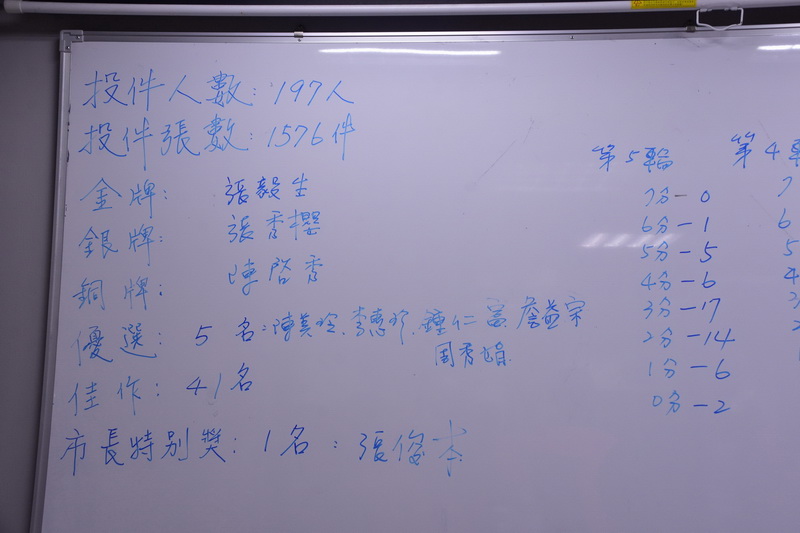 投件人數：197人
投件張數：1576件
金牌： 張毅生
銀牌： 張秀櫻
銅牌： 陳啓秀
優選： 5 名：陳美玲、李惠珍、鍾仁富、詹益宗
周秀娟
佳作：41名
市長特別獎：1名：張俊本
第5輪
7分－0
6分－1
5分－5
4分－6
3分－17
2分－14
1分－6
0分－2
第4輪
7
6
5
4